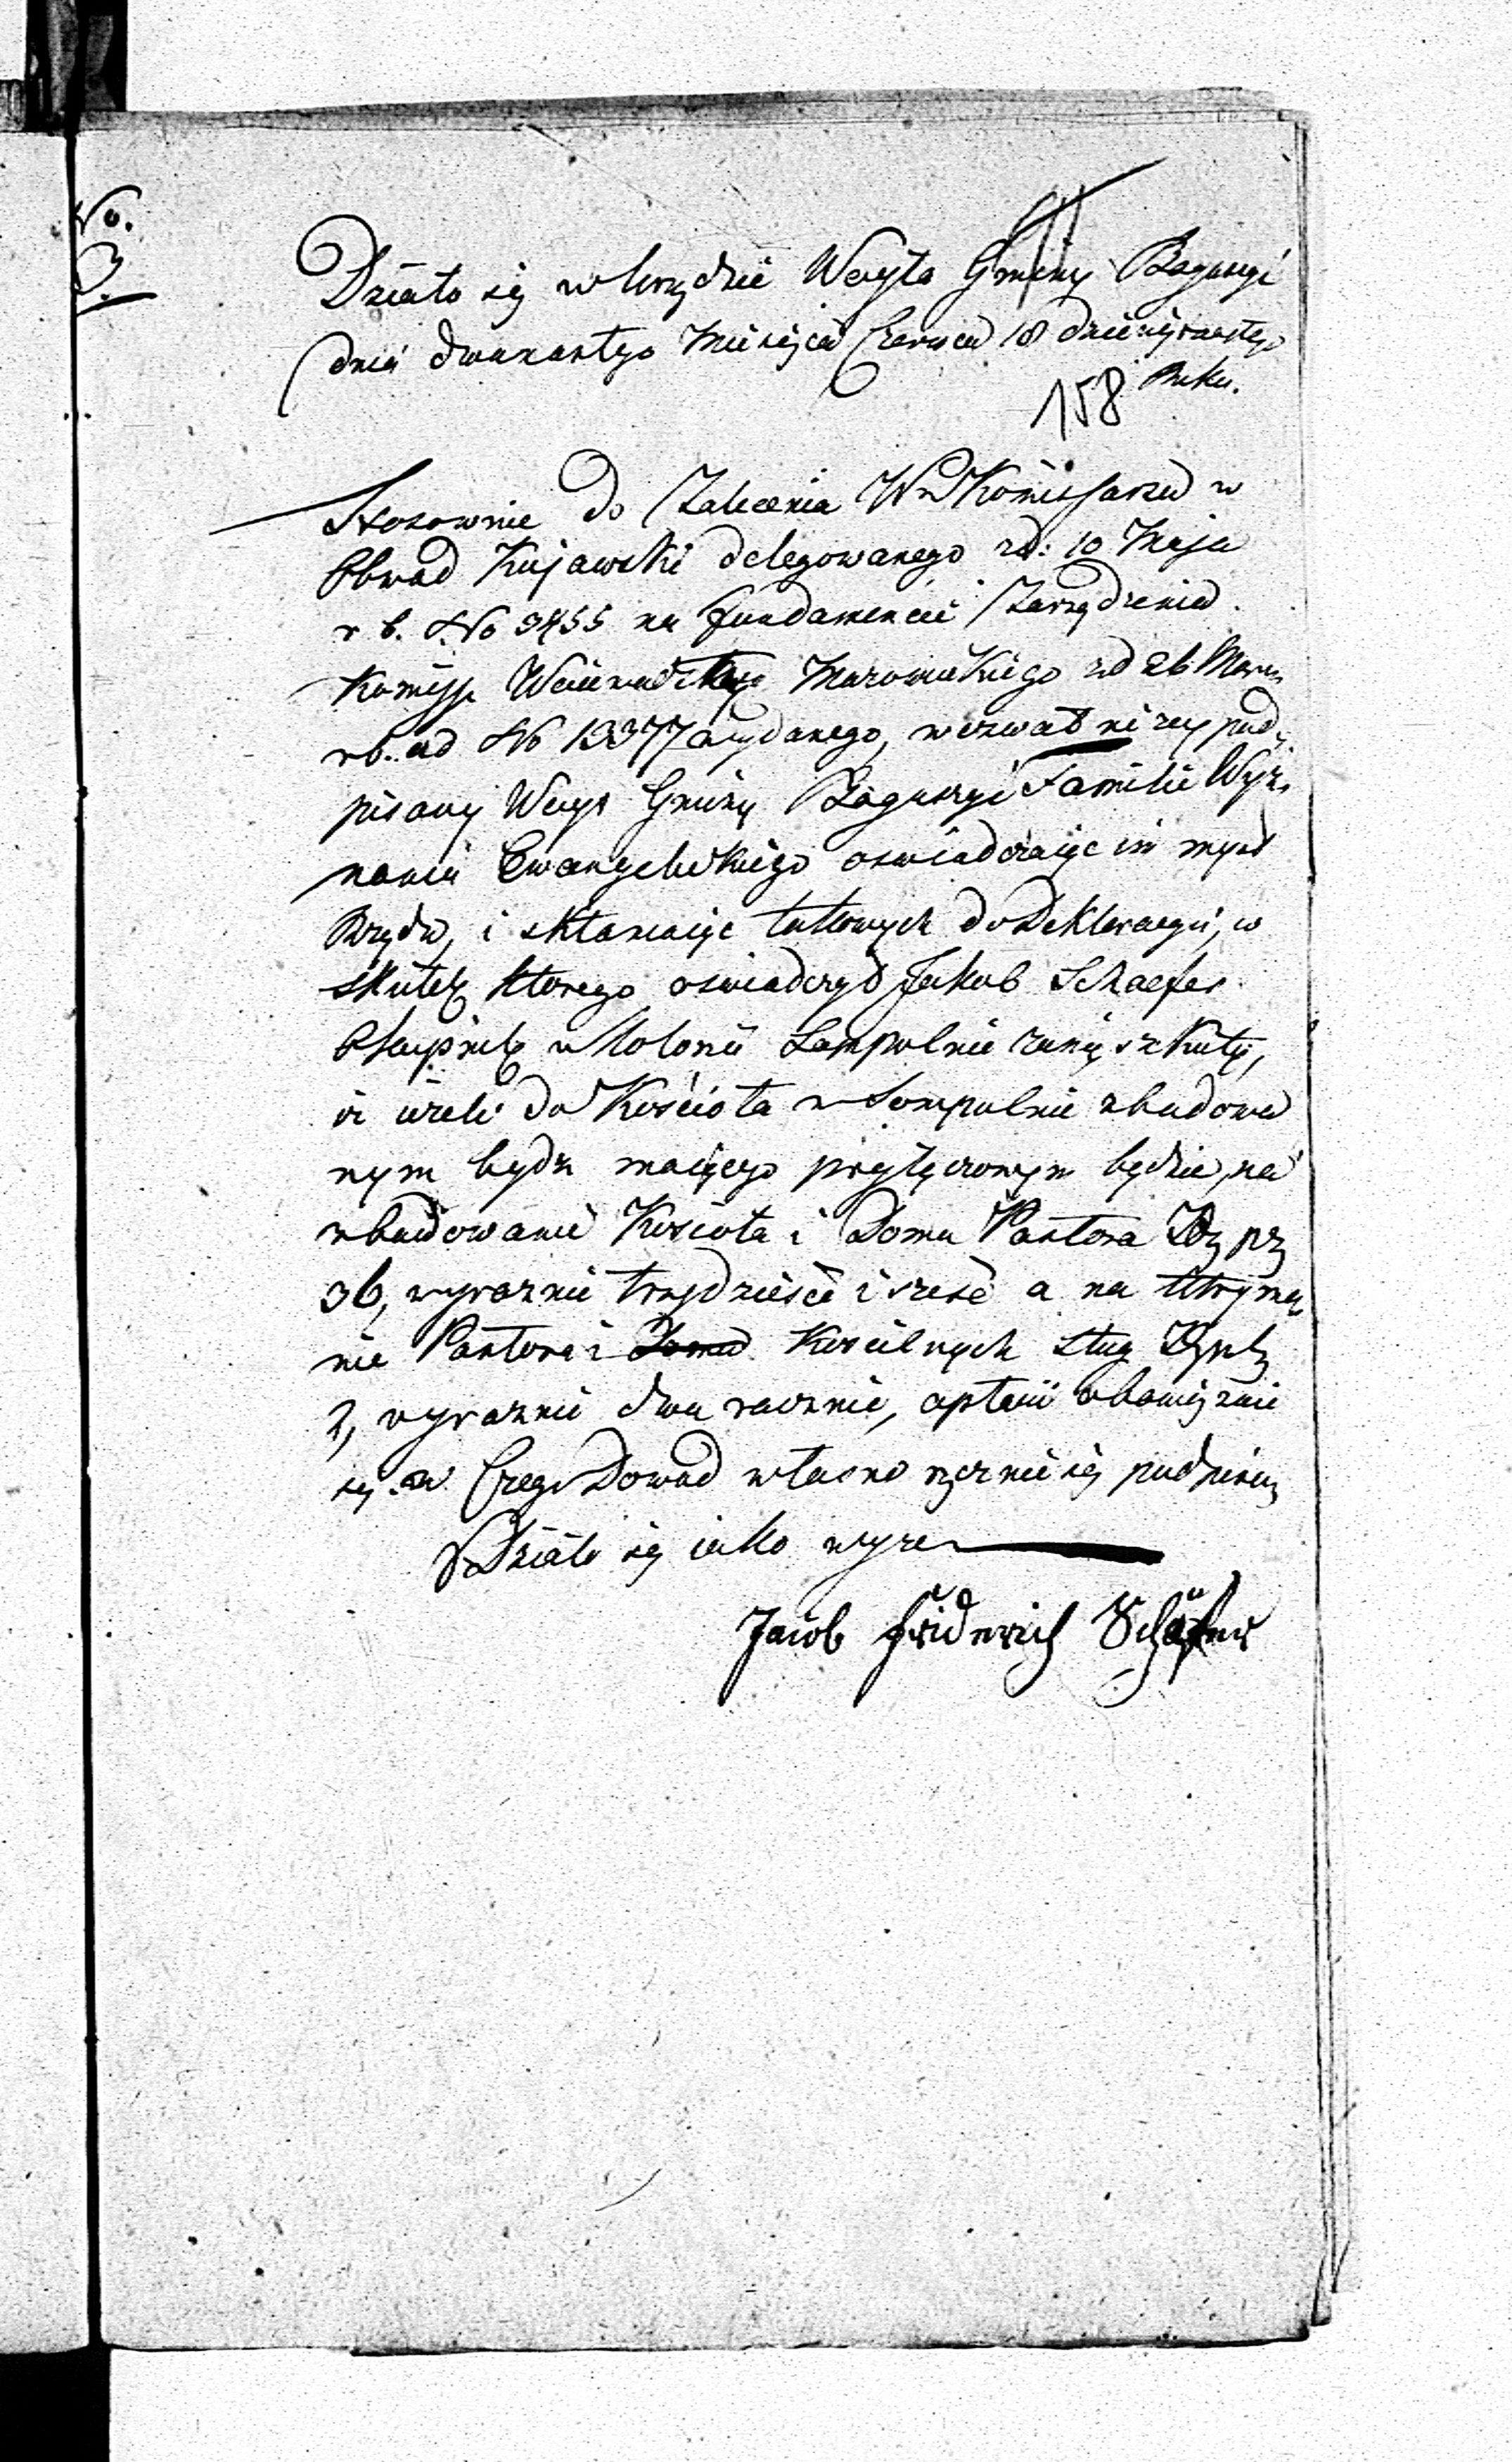 No.
3.
Działo się w Urzędzie Woyta Gminy Baguszyi
dnia dwunastego Miesiąca Czerwca 18 dziewiętnastego
Roku.
158
Stosownie do Zalecenia W Komissarza w
Obwod Kujawski delegowanego zd: 10 Maja
r b. No 3455 na fundamencie Zarządzenia
Komissyi Mazowieckiego zd 26 Marca
rb. ad No 13377 wydanego, wezwał niżey pod,
pisany Woyt Gminy Baguszyi Familie Wyz,
nania Ewangelickiego oswiadczaiąc im mysl
Rządu, i skłaniaiąc takowych do Deklaracyi, w
skutek ktorego oswiadczył Jakub Schaefer
Okupnik w Kolonii Sempolnie
iż iżeli do Kościoła w Sempolnie zbudowa
nym bydz maiącego przyłączonym będzie, na
wbudowanie Kościoła i Domu Pastora
36, wyraznie trzydzieście i sześć a na Utrzyma
nie Pastora i Domu Kościelnych sług
2, wyraznie dwa rocznie, opłacić obowięzuie
się. w Czego Dowod własno ręcznie się podpisuię
Działo się iako wyzey
Jacob Friderich Schäfer